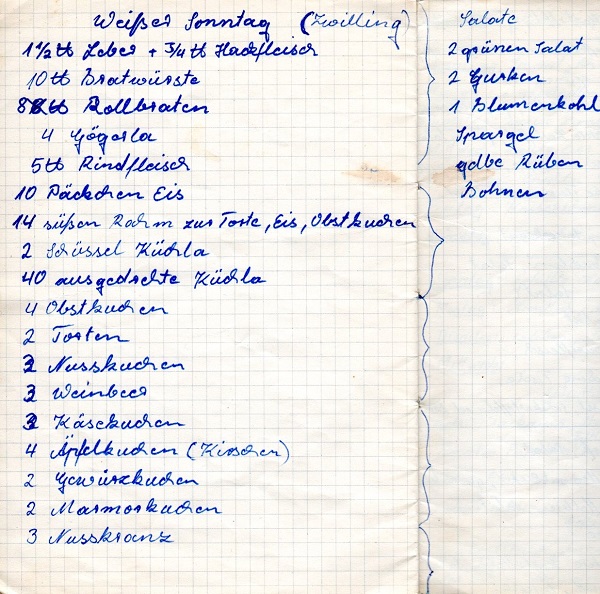 Weißer Sonntag (Zwilling)
1 1/2 ℔ Leber + 3/4 ℔ Hackfleisch
10 ℔ Bratwürste
8 ℔ Rollbraten
4 Gögerla
5 ℔ Rindfleisch
10 Päckchen Eis
14 süßen Rahm zur Torte, Eis, Obstkuchen
2 Schüssel Küchla
40 ausgedrehte Küchla
4 Obstkuchen
2 Torten
2 Nusskuchen
3 Weinbeer
3 Käsekuchen
4 Äpfelkuchen (Kirschen)
2 Gewürzkuchen
2 Marmorkuchen
3 Nusskranz
Salate
2 grünen Salat
2 Gurken
1 Blumenkohl
Spargel
gelbe Rüben
Bohnen